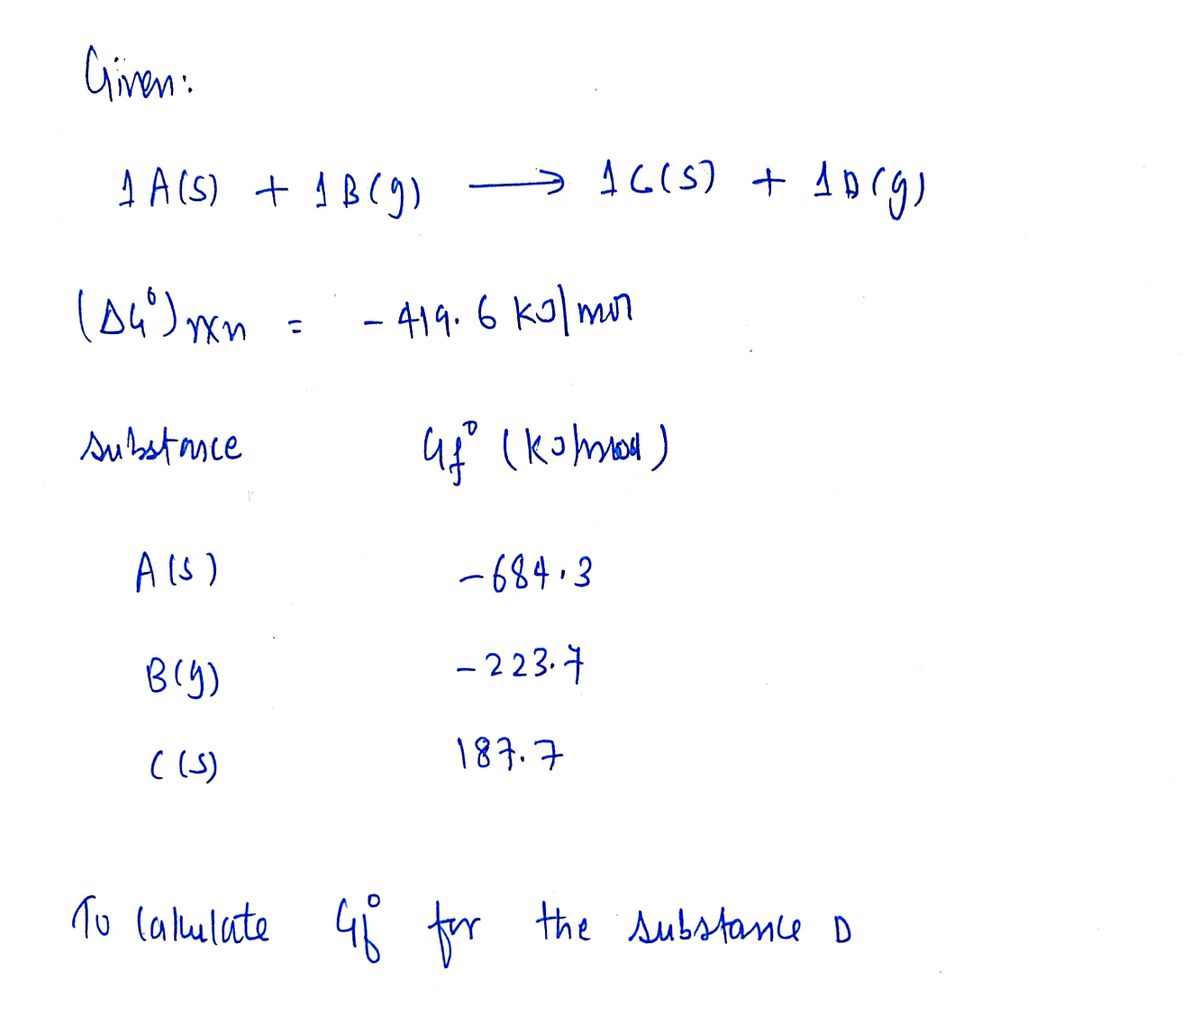 Given:
1 A(s) + 1 B(g) ⟶ 1 C(s) + 1 D(g)
(ΔG°)rxn = - 419.6 kJ/mol
substance Gf° (kJ/mol)
A(s) -684.3
B(g) -223.7
C(s) 187.7
To calculate Gf° for the substance D